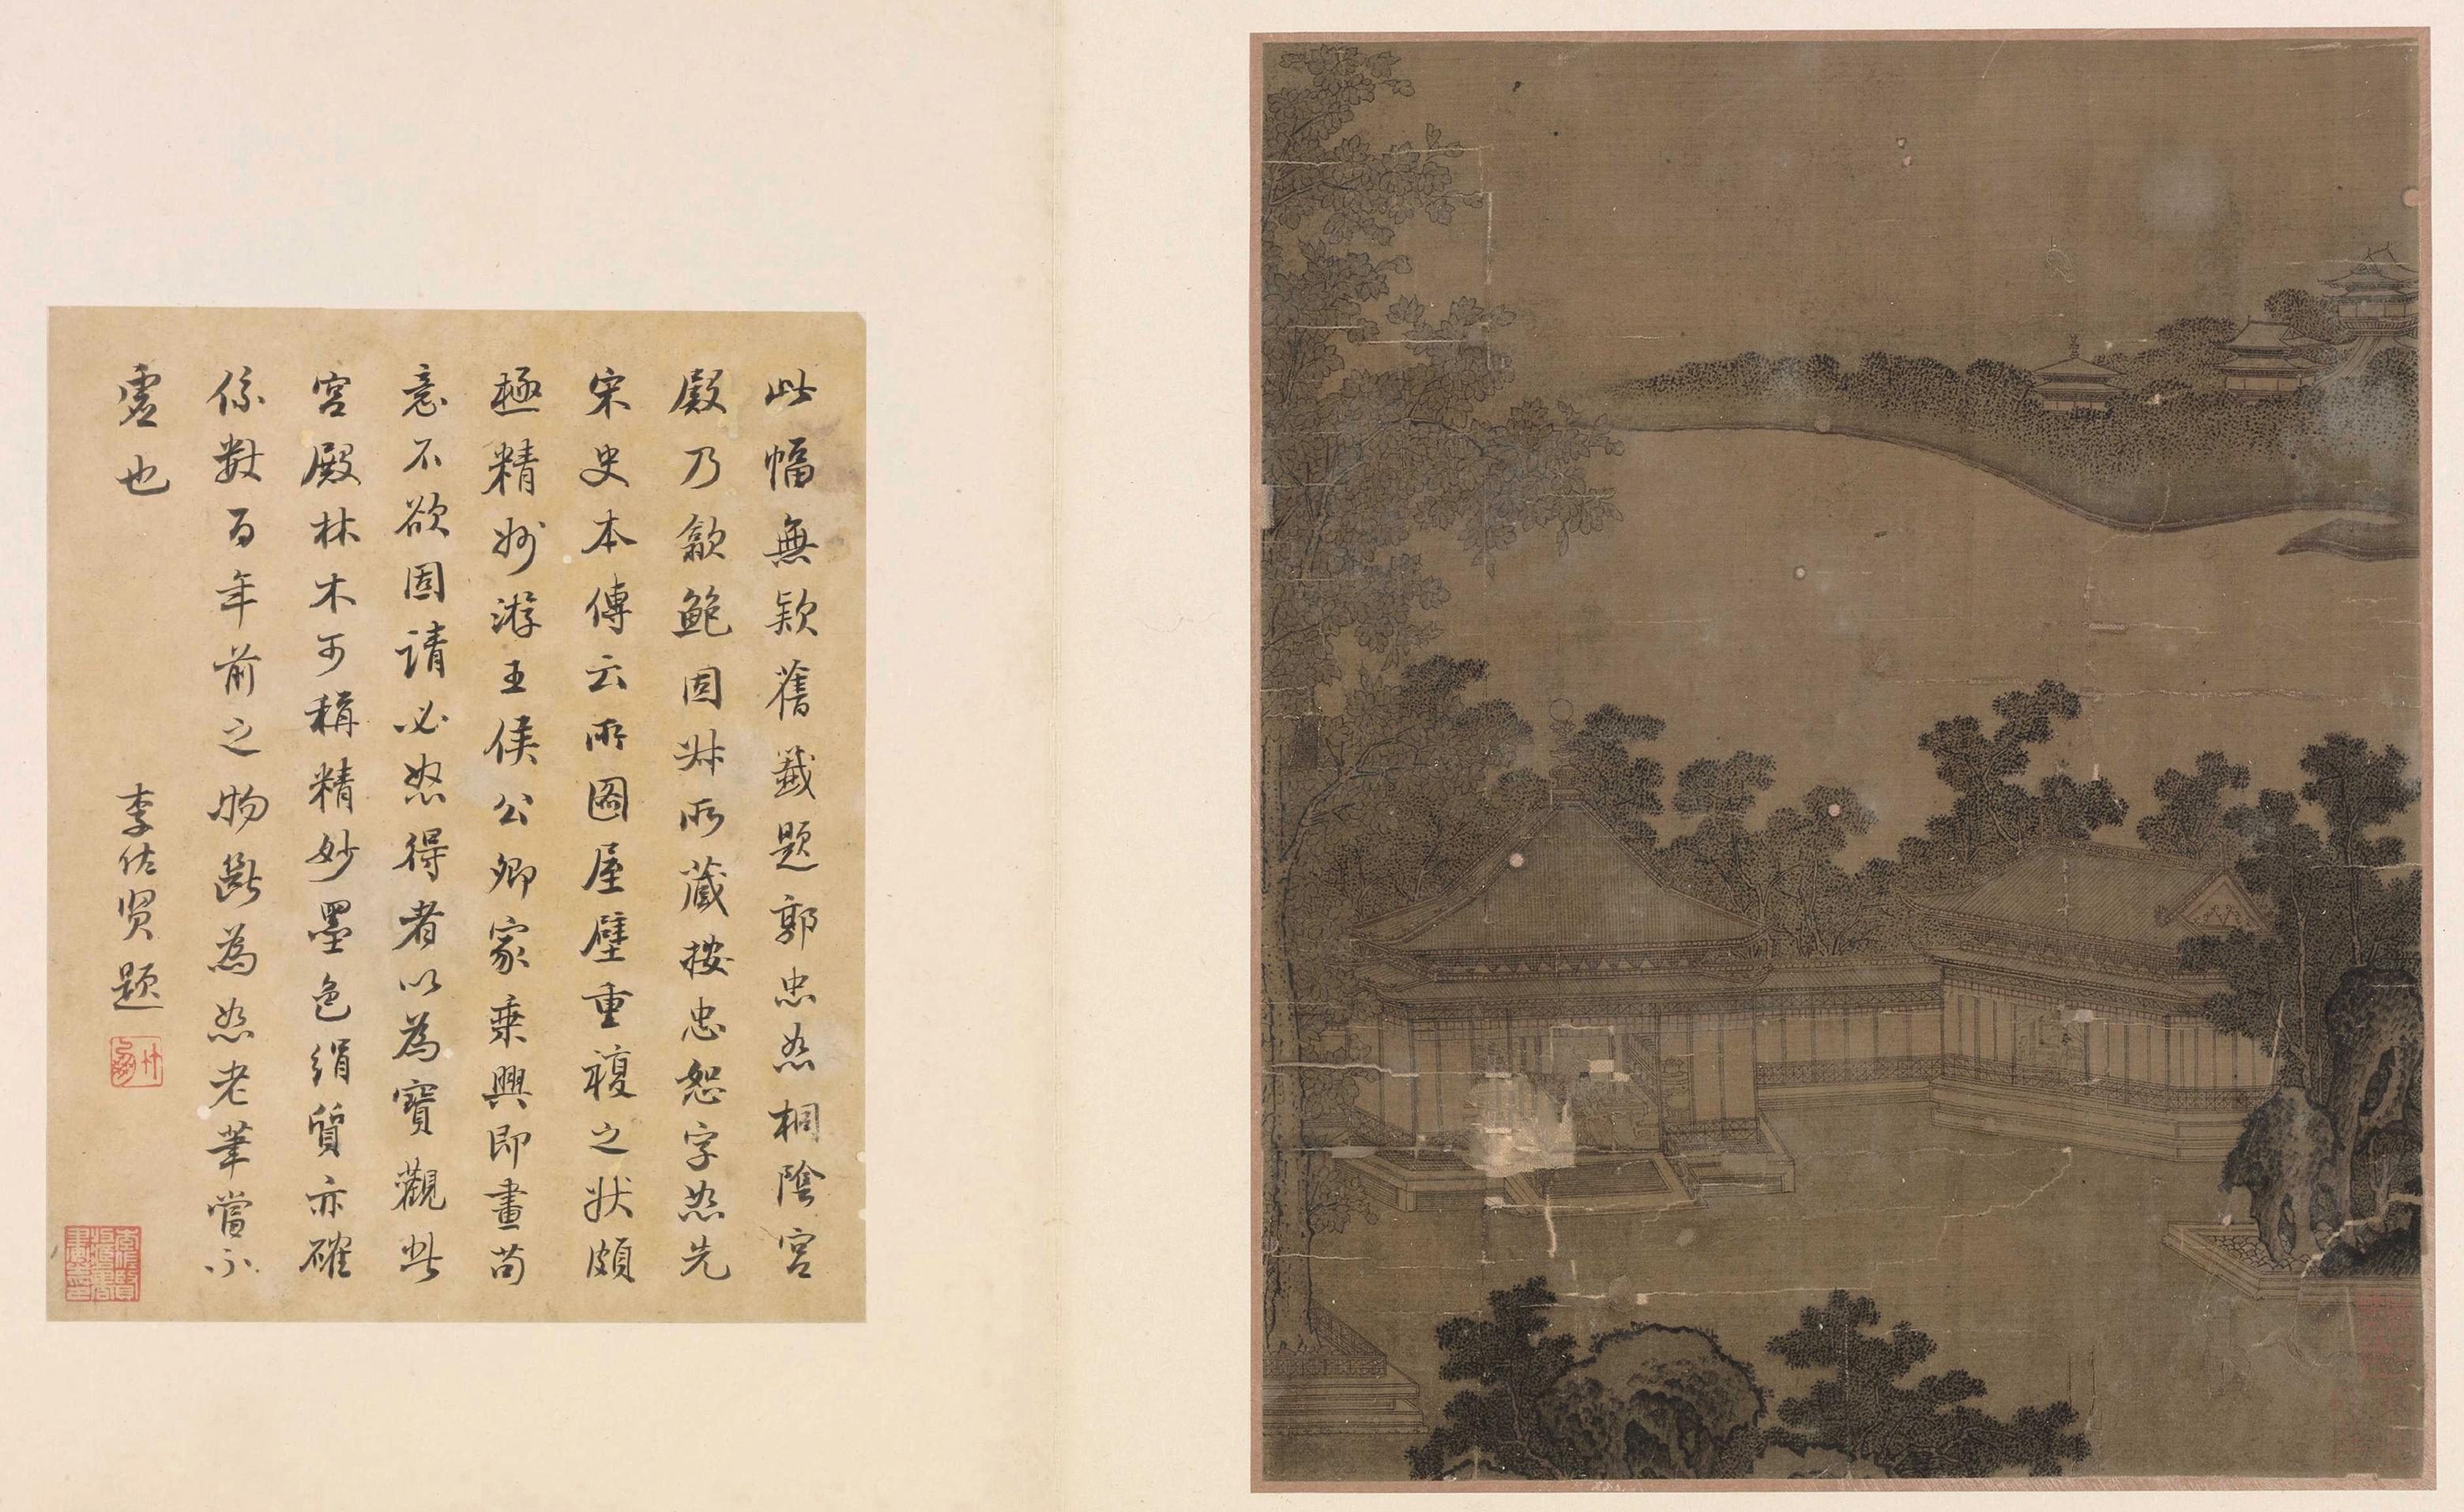 此幅無款舊籤題郭忠恕桐陰宮
殿乃歙鮑固叔所藏按忠恕字恕先
宋史本傳云所圖屋壁重複之狀頗
極精妙游王侯公卿家乗興即畫苟
意不欲固請必怒得者以為寶觀此
宮殿林木可稱精妙墨色絹質亦確
係數百年前之物斷為恕老筆當不
虛也
李佐贤题